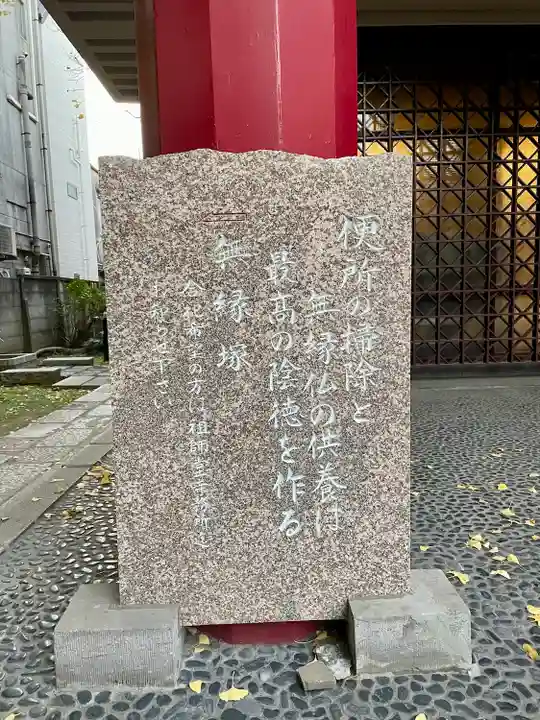 便所の掃除と
無縁仏の供養は
最高の陰徳を作る
一 無縁塚
合祀希望の方は祖師堂事務所迄
お申込み下さい